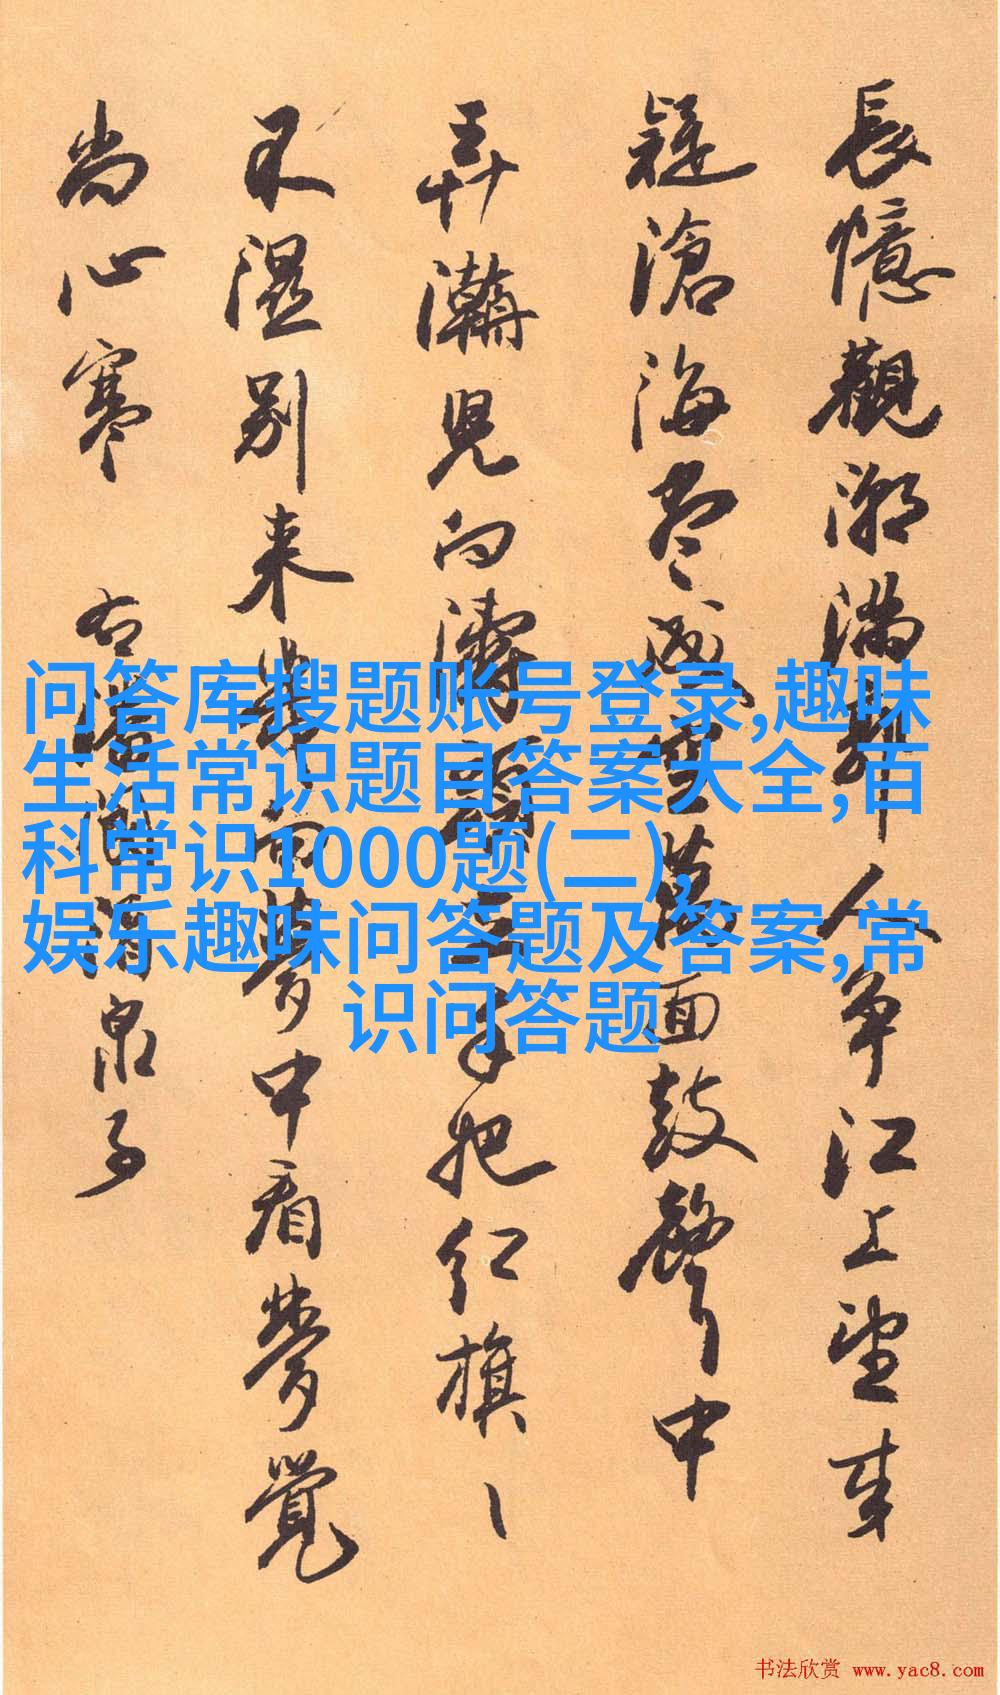 長憶觀潮滿郭人爭江上望来
疑滄海盡成空萬面鼓聲中
弄潮兒向濤頭立手把红旗ヽ
不湿别来幾向夢中看夢覺
尚心寒 右潘閬酒泉子
问答库搜题账号登录,趣味
生活常识题目答案大全,百
科常识1000题(二),
娱乐趣味问答题及答案,常
识问答题
书法欣赏 www.yac8.com